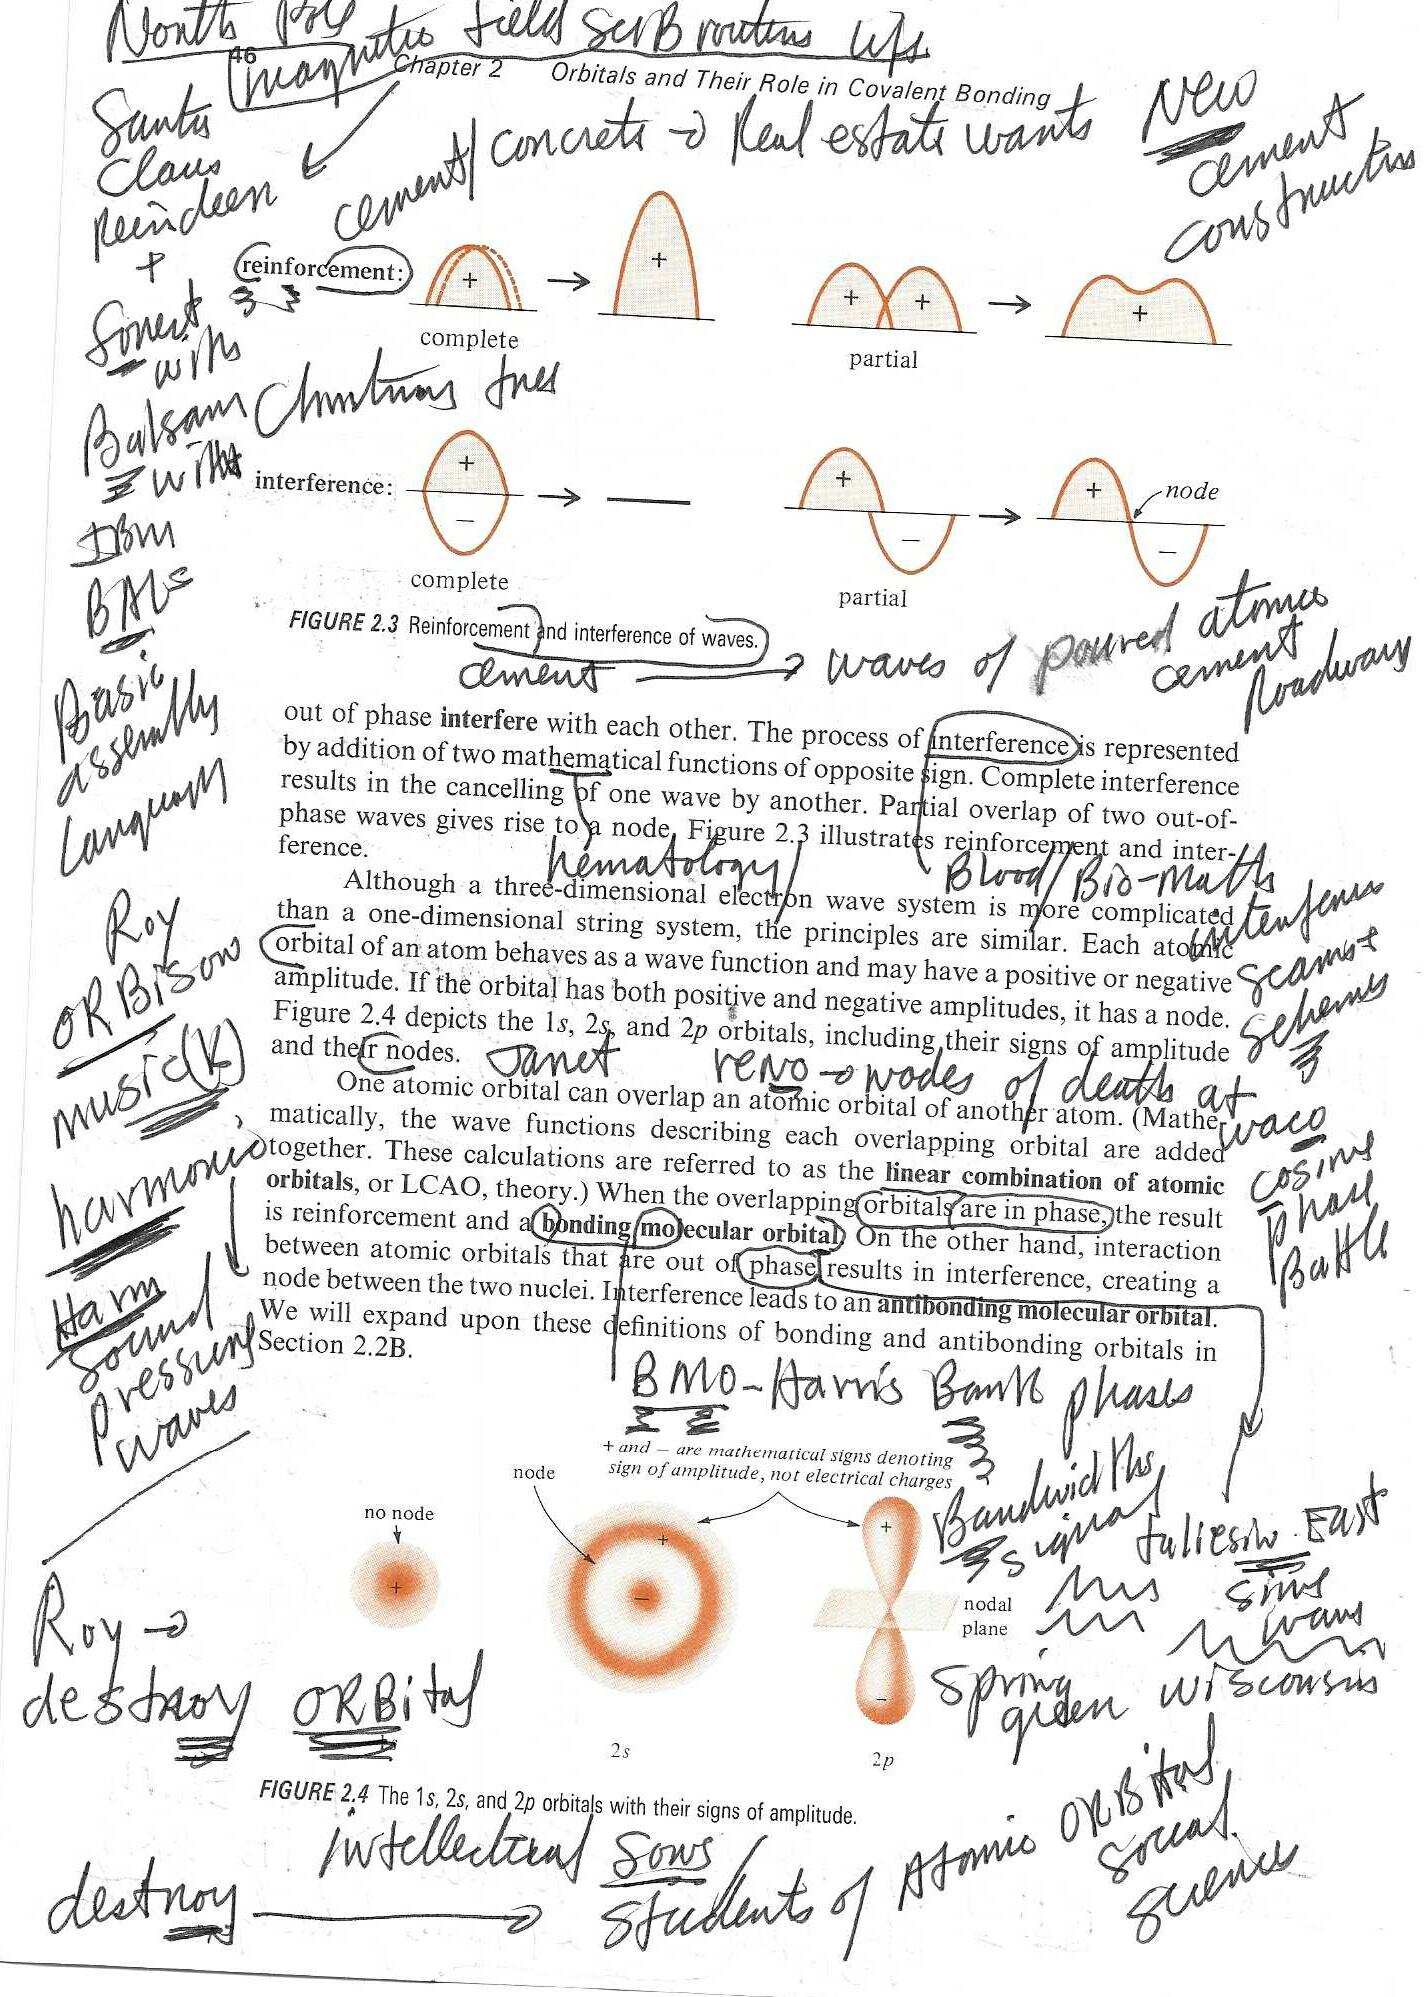 North Pole
magnetic field SctB routers ups
46
Chapter 2 Orbitals and Their Role in Covalent Bonding
Santa
Claus
Reindeer
+
Sonest
with
Balsam Christmas trees
with
IBM
BALs
Basic
assembly
Language
cement/concrete → Real estate wants
New
cement
construction
reinforcement:
+ → +
+ + → +
complete
partial
interference:
+ − →
+ − → + −
node
complete
partial
FIGURE 2.3 Reinforcement and interference of waves.
cement → waves of poured atomic
cement
Roadways
out of phase interfere with each other. The process of interference is represented
by addition of two mathematical functions of opposite sign. Complete interference
results in the cancelling of one wave by another. Partial overlap of two out-of-
phase waves gives rise to a node. Figure 2.3 illustrates reinforcement and inter-
ference.
hematology/
Blood/Bio-Maths
Although a three-dimensional electron wave system is more complicated
than a one-dimensional string system, the principles are similar. Each atomic
orbital of an atom behaves as a wave function and may have a positive or negative
amplitude. If the orbital has both positive and negative amplitudes, it has a node.
Figure 2.4 depicts the 1s, 2s, and 2p orbitals, including their signs of amplitude
and their nodes.
interference
scams +
schemes
Janet reno → nodes of death at
waco
cosine
phase
Battle
Roy
ORBison
music(k)
harmonic
Harm
sound
pressure
waves
One atomic orbital can overlap an atomic orbital of another atom. (Mathe-
matically, the wave functions describing each overlapping orbital are added
together. These calculations are referred to as the linear combination of atomic
orbitals, or LCAO, theory.) When the overlapping orbitals are in phase, the result
is reinforcement and a bonding molecular orbital. On the other hand, interaction
between atomic orbitals that are out of phase results in interference, creating a
node between the two nuclei. Interference leads to an antibonding molecular orbital.
We will expand upon these definitions of bonding and antibonding orbitals in
Section 2.2B.
BMO-Harris Bank phases
Bandwidths
signal
taliesin East
sine
waves
Spring
green wisconsin
+ and − are mathematical signs denoting
sign of amplitude, not electrical charges
node
no node
+
+
−
+
−
nodal
plane
Roy →
destroy ORBital
2s
2p
FIGURE 2.4 The 1s, 2s, and 2p orbitals with their signs of amplitude.
intellectual Sows/
destroy → students of Atomic ORBital
social
science